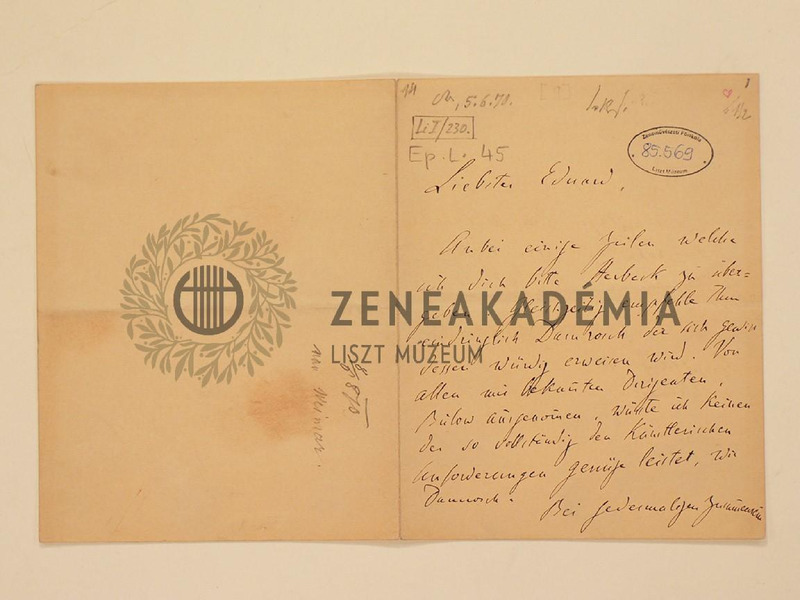 14
5.6.70.
Li I/230.
Ep. L. 45
Zeneművészeti Főiskola
85.569
Liszt Múzeum
1
Liebster Eduard,
Anbei einige Zeilen welche
ich dich bitte Herbeck zu über-
geben. Gleichzeitig empfehle Ihm
eindringlich Damrosch der sich gewiss
dessen würdig erweisen wird. Von
allen mir bekannten Dirigenten,
Bülow ausgenomen, wüsste ich keinen
der so vollständig den Künstlerischen
Anforderungen genüge leistet, wie
Damrosch.
Bei jedesmaligen
ZENEAKADÉMIA
LISZT MÚZEUM
Weimar.